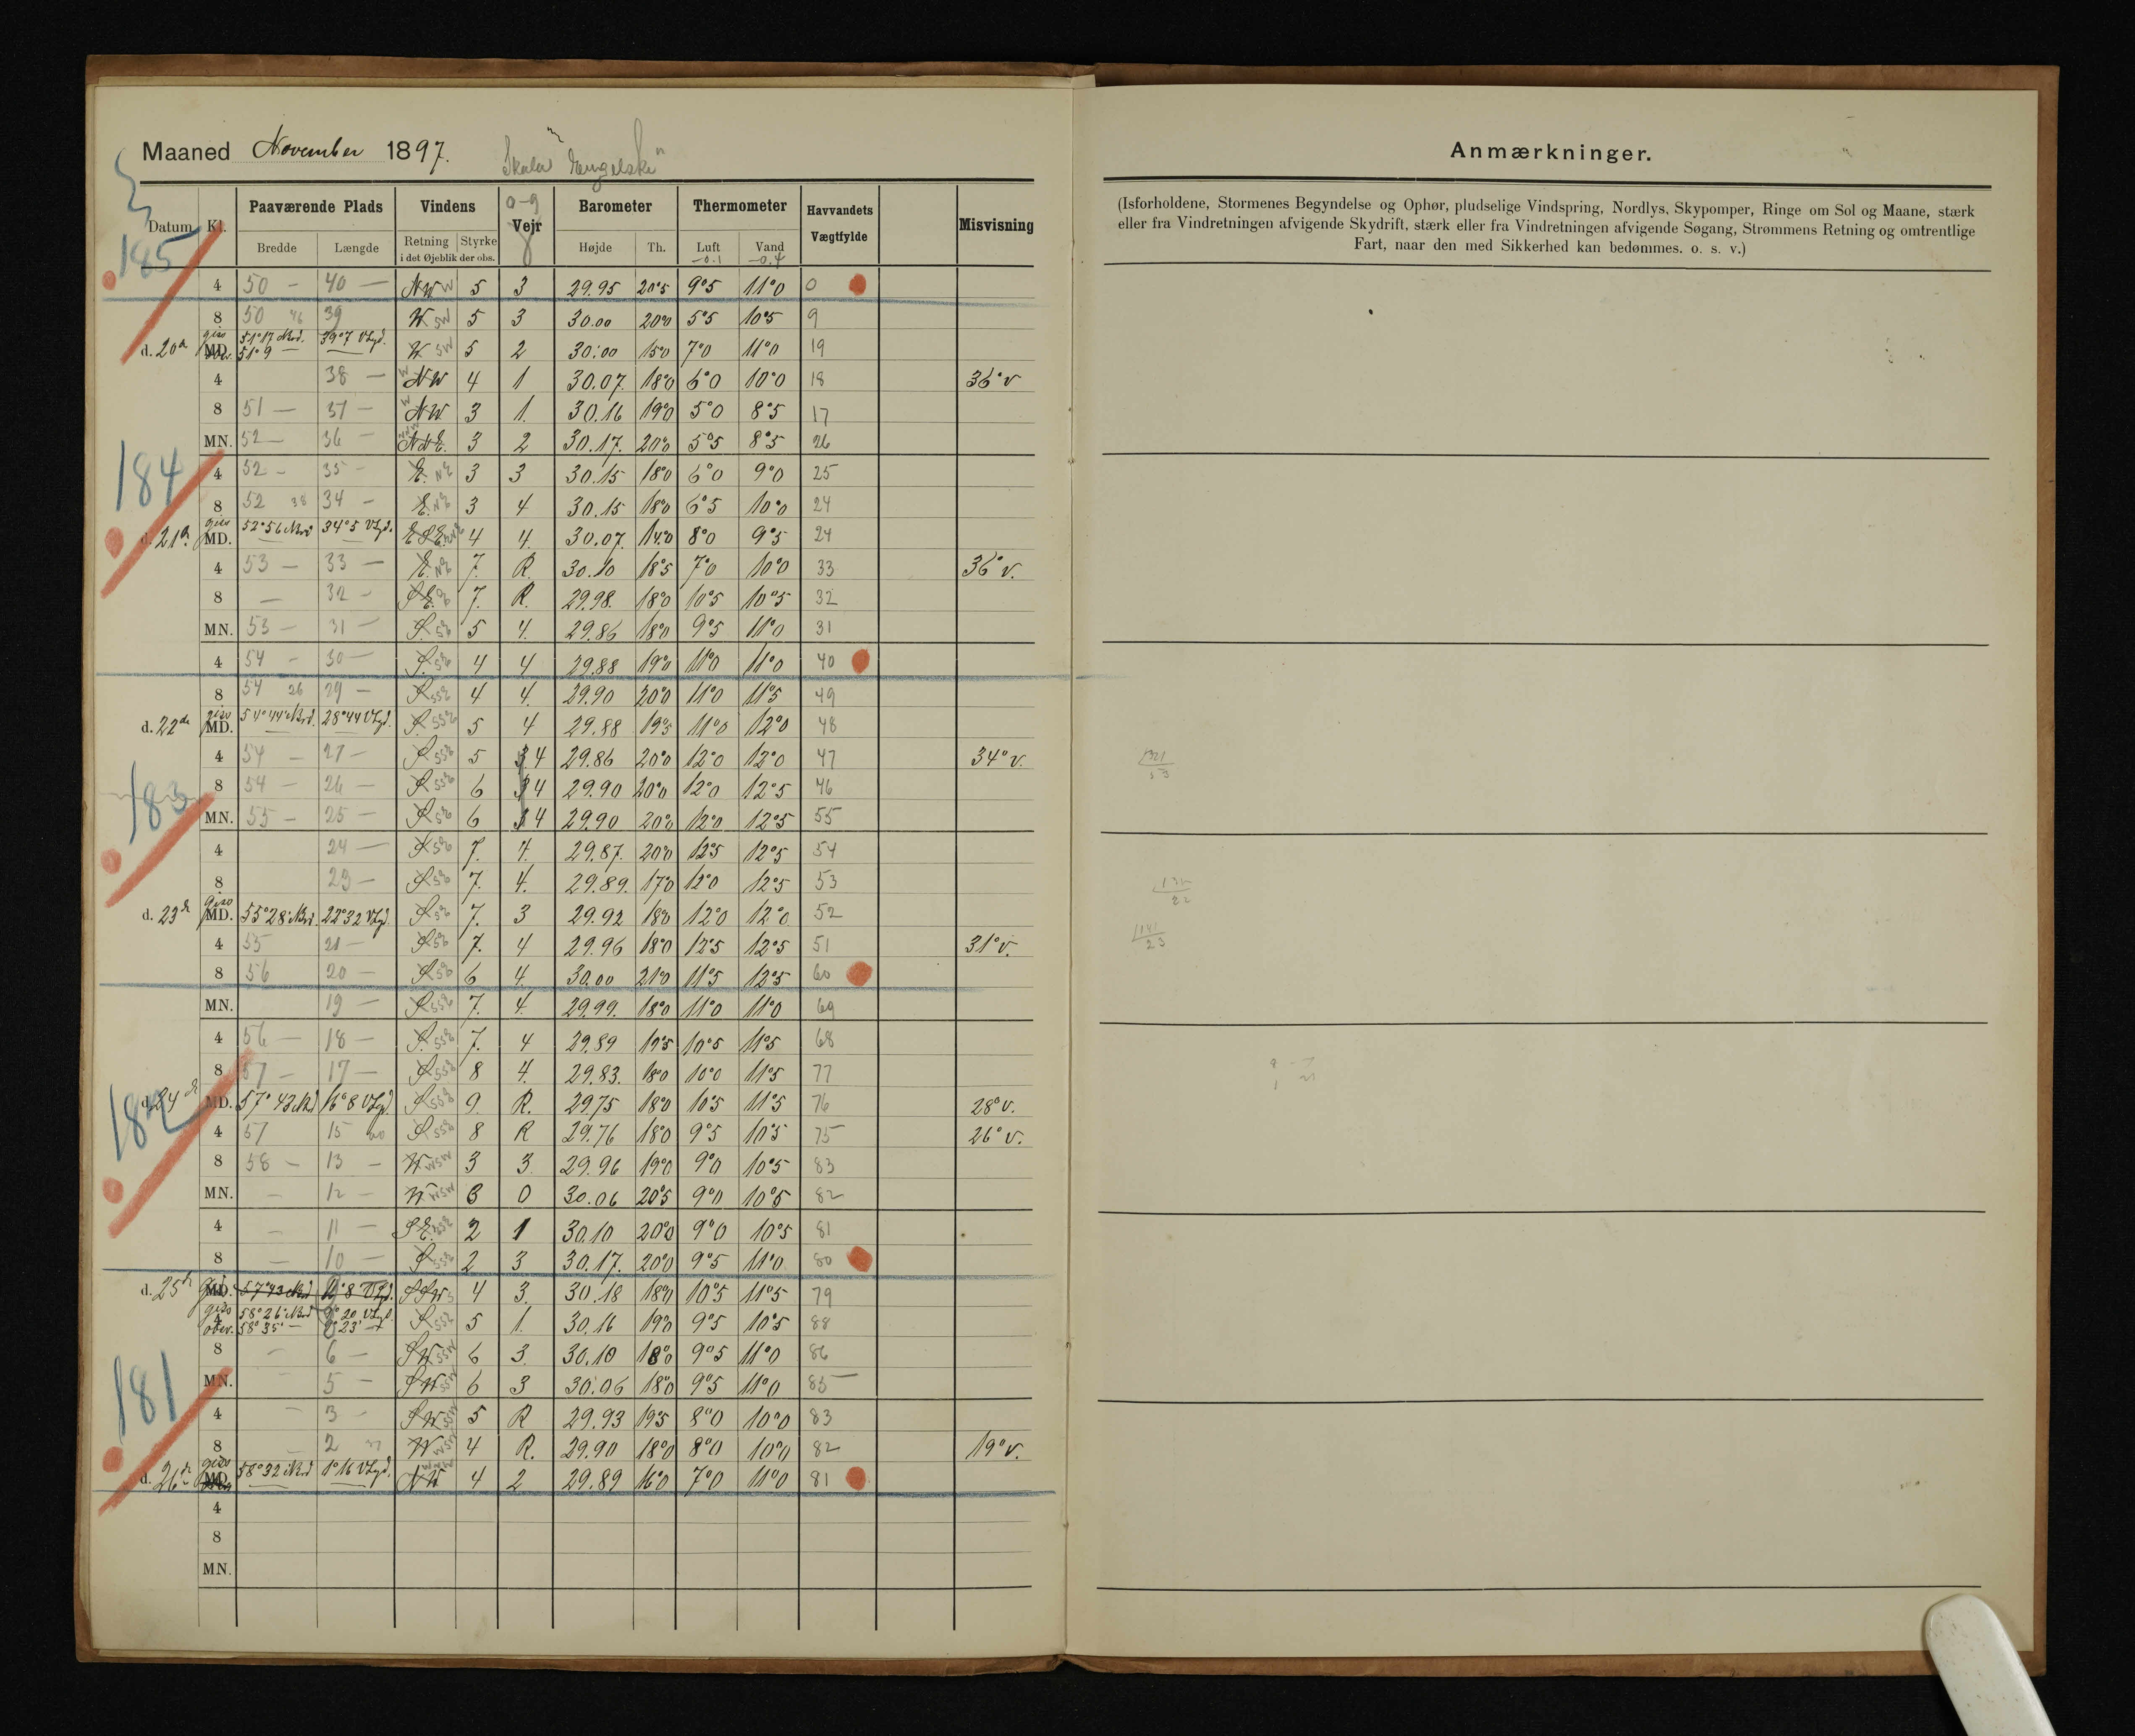 Maaned November 1897.
Skala "Engelsk"
Datum Kl. Paaværende Plads Vindens 0-9 Vejr Barometer Thermometer Havvandets Vægtfylde Misvisning
Bredde Længde Retning Styrke Højde Th. Luft Vand
i det Øjeblik der obs. -0.1 -0.4
185
4 50 - 40 - NW W 5 3 29.95 20°5 9°5 11°0 0
8 50 46 39 W SW 5 3 30.00 20°0 5°5 10°5 9
d. 20de giss MD. 51°17 Nrd. 39°7 VLgd. W SW 5 2 30.00 15°0 7°0 11°0 19
obv. 51°9 -
4 38 - NW W 4 1 30.07. 18°0 6°0 10°0 18 36° v
8 51 - 37 - NW W 3 1. 30.16 19°0 5°0 8°5 17
MN. 52 - 36 - NNE. 3 2 30.17. 20°0 5°5 8°5 26
184
4 52 - 35 - E. NE 3 3 30.15 18°0 6°0 9°0 25
8 52 38 34 - E. NE 3 4 30.15 18°0 6°5 10°0 24
d. 21de giss MD. 52°56 Nrd 34°5 VLgd. ESE. 4 4. 30.07. 14°0 8°0 9°5 24
4 53 - 33 - E. NE 7. R. 30.10 18°5 7°0 10°0 33 36° v.
8 - 32 - SE. E 7. R. 29.98. 18°0 10°5 10°5 32
MN. 53 - 31 - S. SE 5 4. 29.86 18°0 9°5 11°0 31
4 54 - 30 - S. SE 4 4 29.88 19°0 11°0 11°0 40
8 54 26 29 - S SSE 4 4. 29.90 20°0 11°0 11°5 49
d. 22de giss MD. 54°44 Nrd. 28°44 VLgd. S. SSE 5 4 29.88 19°5 11°0 12°0 48
4 54 - 27 - S SSE 5 3 4 29.86 20°0 12°0 12°0 47 34° v.
183
8 54 - 26 - S SSE 6 3 4 29.90 20°0 12°0 12°5 46
MN. 55 - 25 - S SE 6 3 4 29.90 20°0 12°0 12°5 55
4 24 - S SE 7. 4. 29.87. 20°0 12°5 12°5 54
8 23 - S SE 7. 4. 29.89. 17°0 12°0 12°5 53
d. 23de giss MD. 55°28 Nrd. 22°32 VLgd. S SE 7. 3 29.92 18°0 12°0 12°0 52
4 55 21 - S SE 7. 4 29.96 18°0 12°5 12°5 51 31° v.
8 56 20 - S SE 6 4. 30.00 21°0 11°5 12°5 60
MN. 19 - S SSE 7. 4. 29.99. 18°0 11°0 11°0 69
4 56 - 18 - S. SSE 7. 4 29.89 19°5 10°5 11°5 68
8 57 - 17 - S SSE 8 4. 29.83. 18°0 10°0 11°5 77
182
d. 24de MD. 57°43 Nrd 16°8 VLgd. S SSE 9. R. 29.75 18°0 10°5 11°5 76 28° v.
4 57 15 S SSE 8 R 29.76 18°0 9°5 10°5 75 26° v.
8 58 - 13 - W WSW 3 3. 29.96 19°0 9°0 10°5 83
MN. - 12 - W WSW 3 0 30.06 20°5 9°0 10°5 82
4 - 11 - SE. SSE 2 1 30.10 20°0 9°0 10°5 81
8 - 10 - S SSE 2 3 30.17. 20°0 9°5 11°0 80
d. 25de MD. 57°43 Nrd 16°8 VLgd. SSW S 4 3. 30.18 18°0 10°5 11°5 79
giss 58°26 Nrd 9°20 VLgd
4 S SSE 5 1. 30.16 19°0 9°5 10°5 88
obsr. 58°35' - 8°23' -
8 - 6 - SW SSW 6 3. 30.10 18°0 9°5 11°0 86
181
MN. - 5 - SW SSW 6 3 30.06 18°0 9°5 11°0 85
4 - 3 - SW SSW 5 R 29.93 19°5 8°0 10°0 83
8 - 2 W WSW 4 R. 29.90 18°0 8°0 10°0 82 19° v.
d. 26de giss MD. 58°32 Nrd 1°16 VLgd. NW 4 2 29.89 16°0 7°0 11°0 81
4
8
MN.
Anmærkninger.
(Isforholdene, Stormenes Begyndelse og Ophør, pludselige Vindspring, Nordlys, Skypomper, Ringe om Sol og Maane, stærk
eller fra Vindretningen afvigende Skydrift, stærk eller fra Vindretningen afvigende Søgang, Strømmens Retning og omtrentlige
Fart, naar den med Sikkerhed kan bedømmes. o. s. v.)